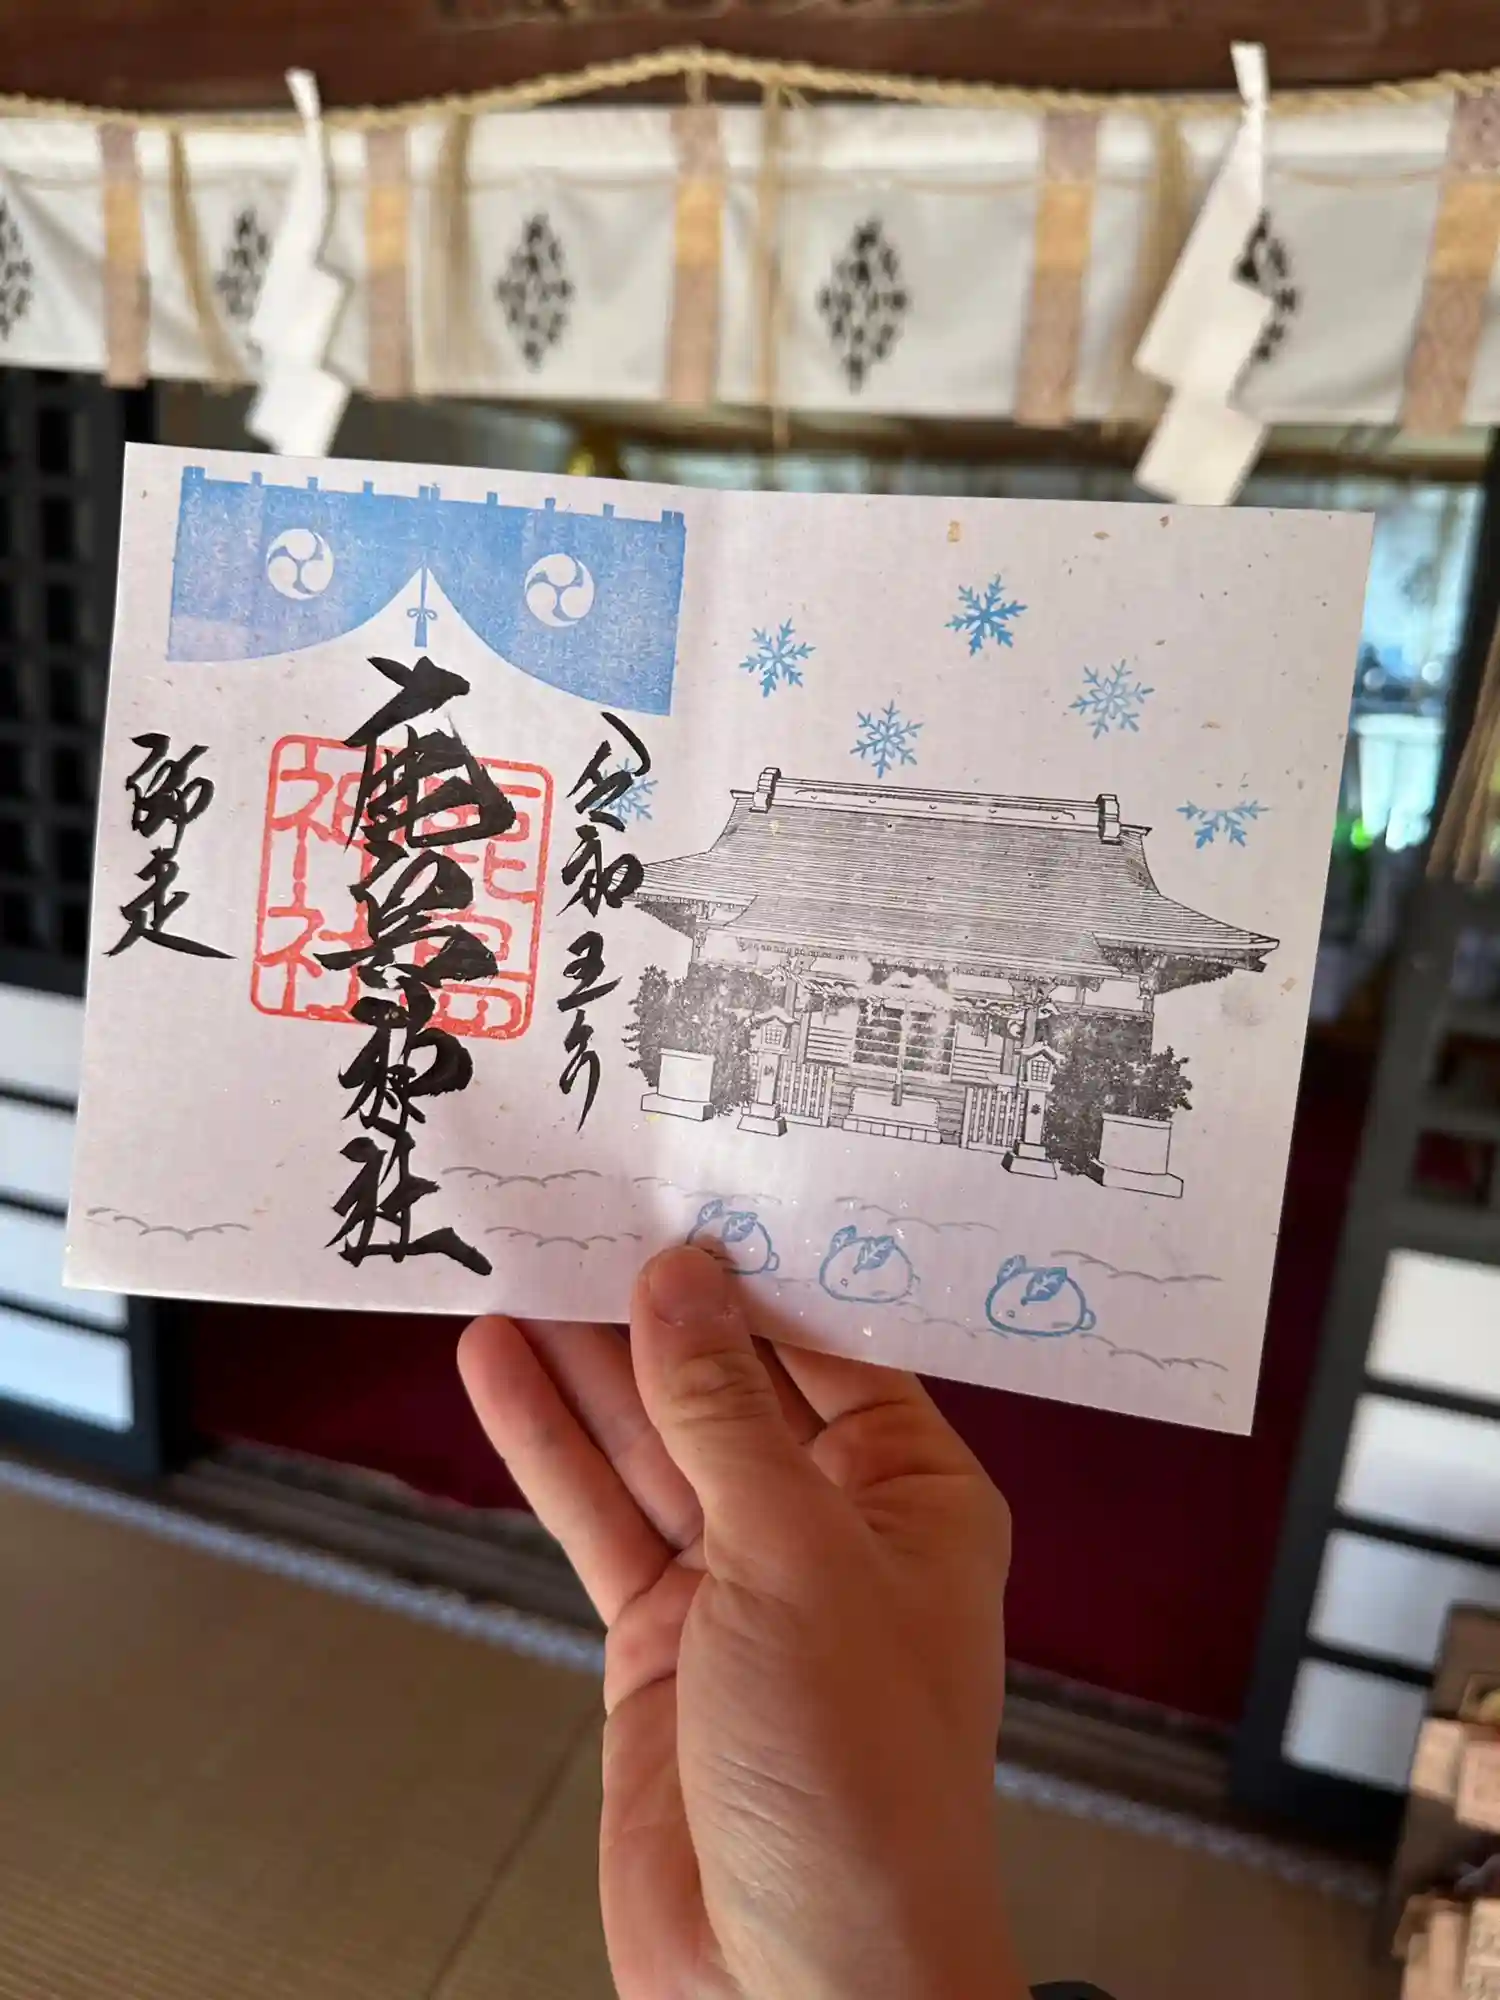 令和五年
鹿島神社
鹿島
神社
師走